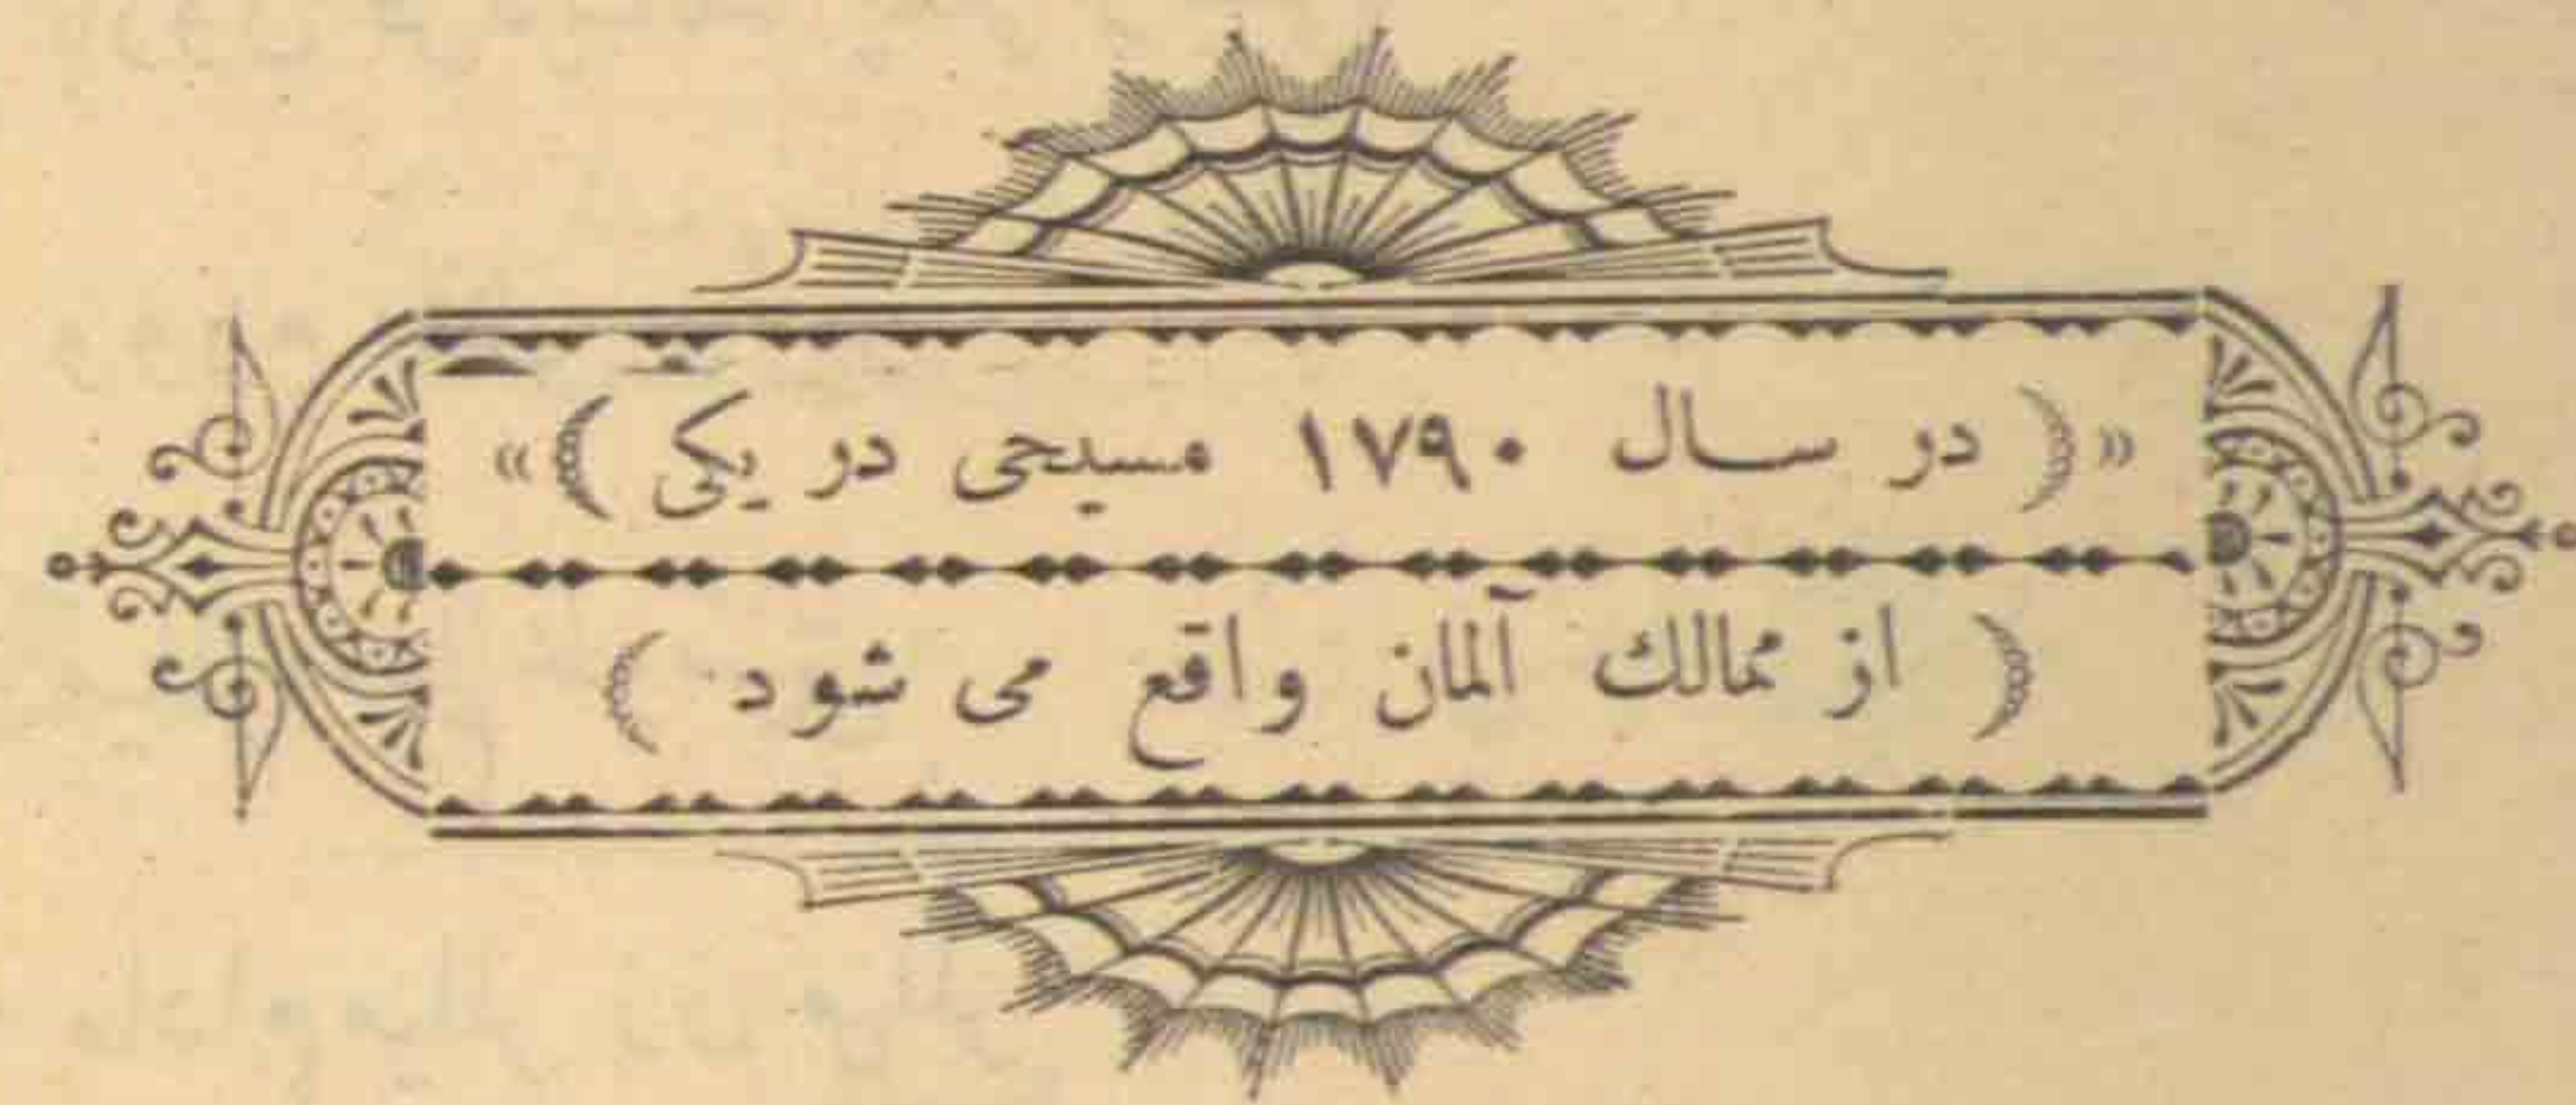 «( در سال ۱۷۹۰ مسیحی در یکی )»
( از ممالك آلمان واقع می شود )